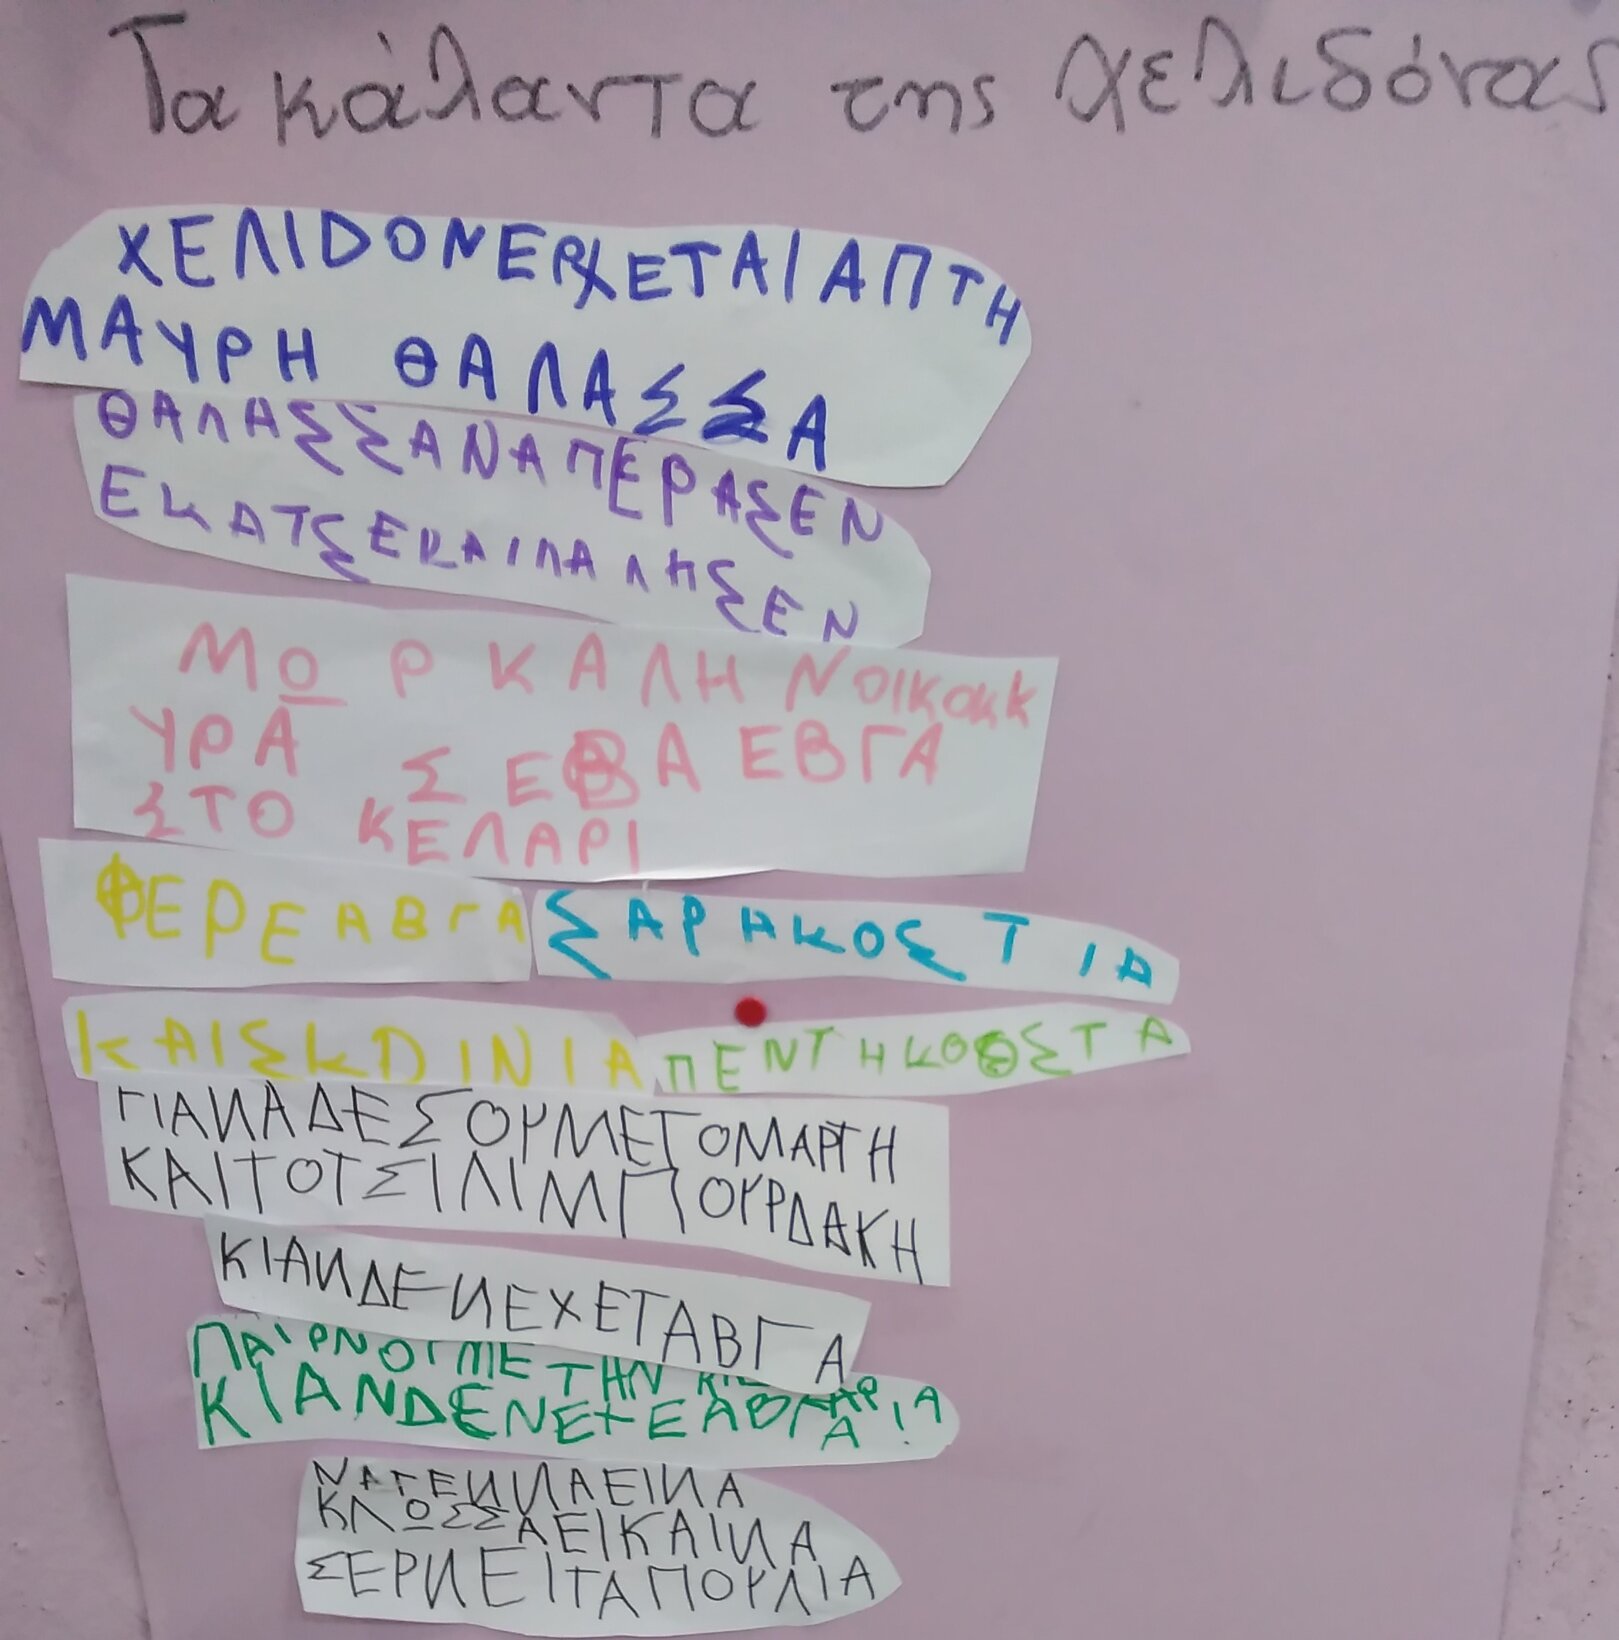 Τα κάλαντα της χελιδόνας
ΧΕΛΙDΟΝΕΡΧΕΤΑΙΑΠΤΗ
ΜΑΥΡΗ ΘΑΛΑΣΣΑ
ΘΑΛΑΣΣΑΝΑΠΕΡΑΣΕΝ
ΕΚΑΤΣΕΚΑΙΛΑΛΗΣΕΝ
ΜΟΡ ΚΑΛΗ ΝΟΙΚΟΚΚ
ΥΡΑ ΣΕΒΑ ΕΒΓΑ
ΣΤΟ ΚΕΛΑΡΙ
ΦΕΡΕΑΒΓΑ ΣΑΡΗΚΟΣΤΙΑ
ΚΑΙΣΚDΙΝΙΑ ΠΕΝΤΗΚΟΘΣΤΑ
ΓΙΑΝΑΔΕΣΟΥΜΕΤΟΜΑΡΤΗ
ΚΑΙΤΟΤΣΙΛΙΜΠΟΥΡΔΑΚΗ
ΚΙΑΝΔΕΝΕΧΕΤΑΒΓΑ
ΠΑΙΡΝΟΥΜΕ ΤΗΝ
ΚΙΑΝDΕΝΕΧΕΑΒΓΑ
ΝΑΓΕΝΝΑΕΙΝΑ
ΚΛΟΣΣΑΕΙΚΑΙΝΑ
ΣΕΡΝΕΙΤΑΠΟΥΛΙΑ